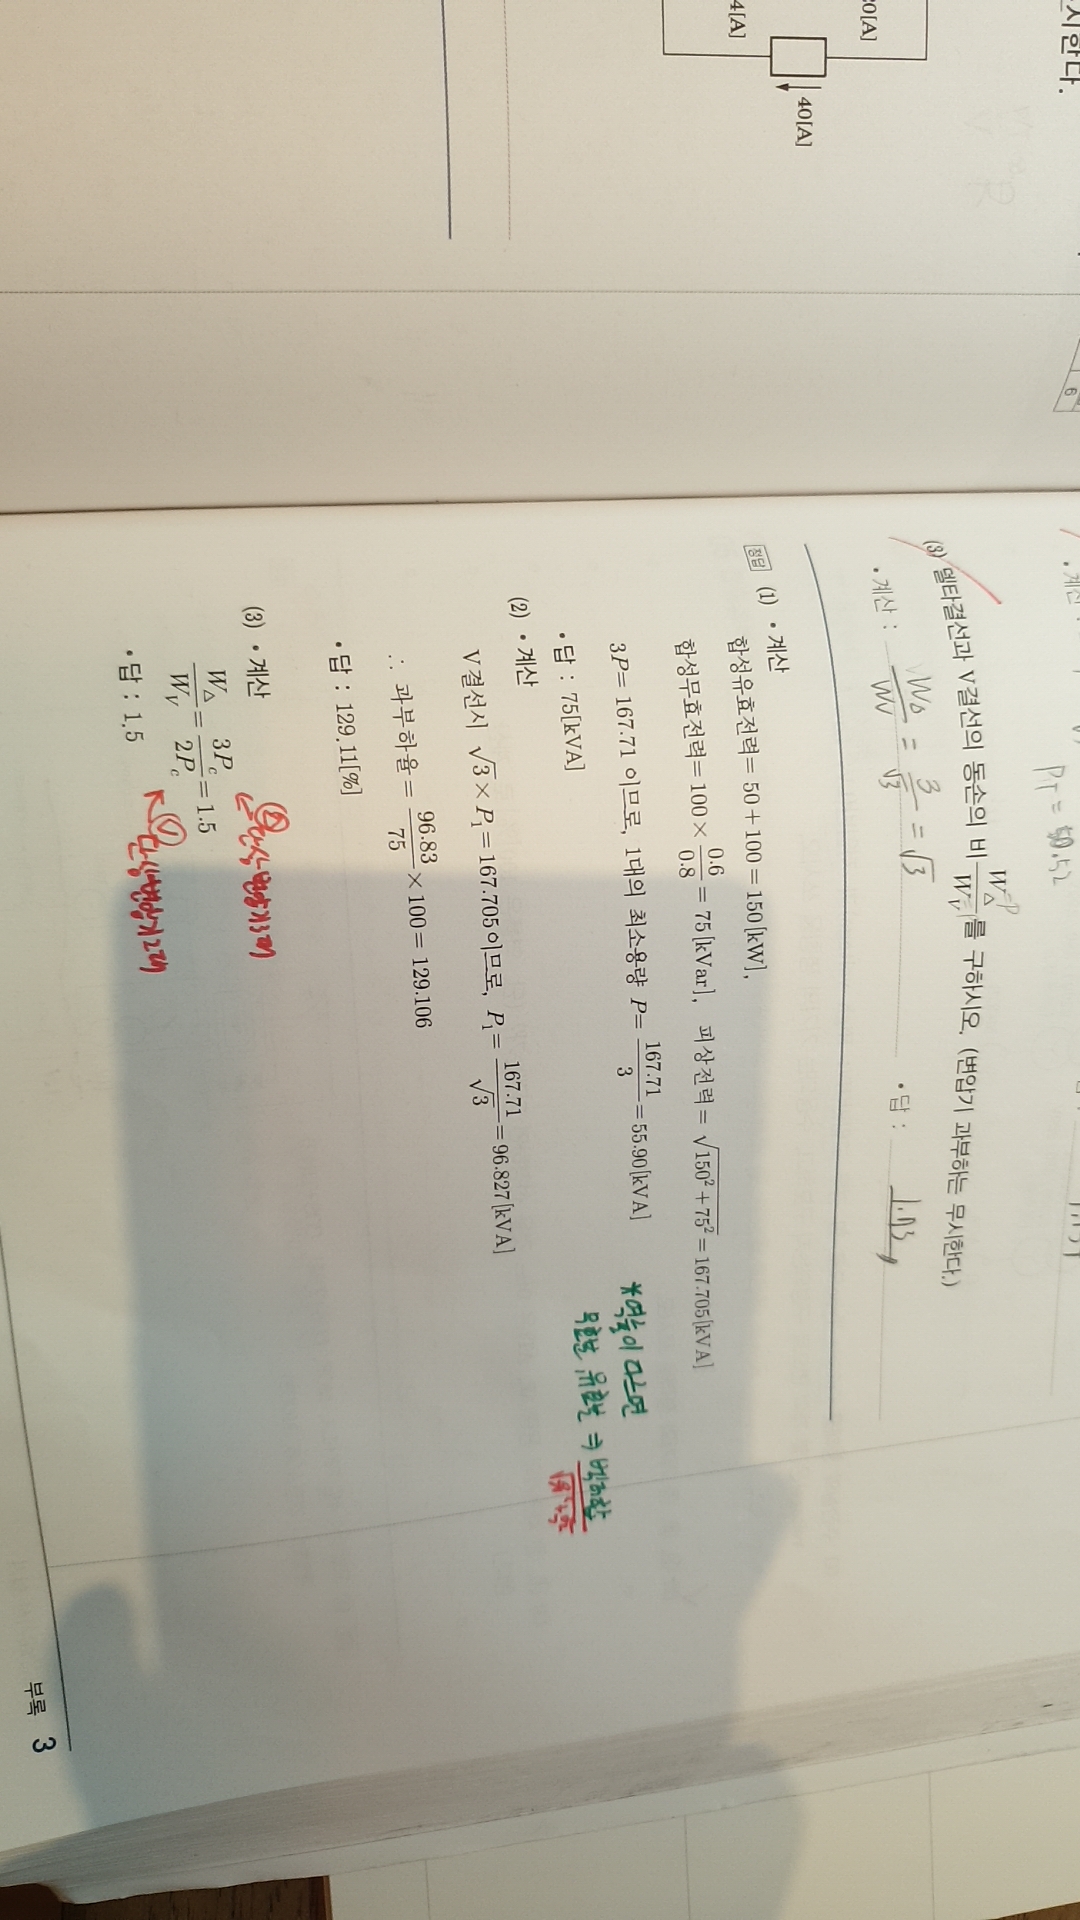 시한다.
20[A]
4[A]
40[A]
6
• 계산
PT = 50.52
(3) 델타결선과 V결선의 동손의 비 W△/WV 를 구하시오. (변압기 과부하는 무시한다.)
• 계산 : W△/WV = 3/√3 = √3
• 답 : 1.73
정답 (1) • 계산
합성유효전력= 50+100=150[kW],
합성무효전력= 100 × 0.6/0.8 = 75[kVar], 피상전력= √150²+75² =167.705[kVA]
3P= 167.71 이므로, 1대의 최소용량 P= 167.71/3 =55.90[kVA]
• 답 : 75[kVA]
*역률이 다르면
무효분 유효분 ⇒ 벡터합
(2) • 계산
V결선시 √3 × P₁ = 167.705이므로, P₁= 167.71/√3 =96.827[kVA]
∴ 과부하율 = 96.83/75 ×100=129.106
• 답 : 129.11[%]
(3) • 계산
W△/WV = 3Pc/2Pc =1.5
△ 단상 변압기 3대
V 단상변압기 2대
• 답 : 1.5
부록 3